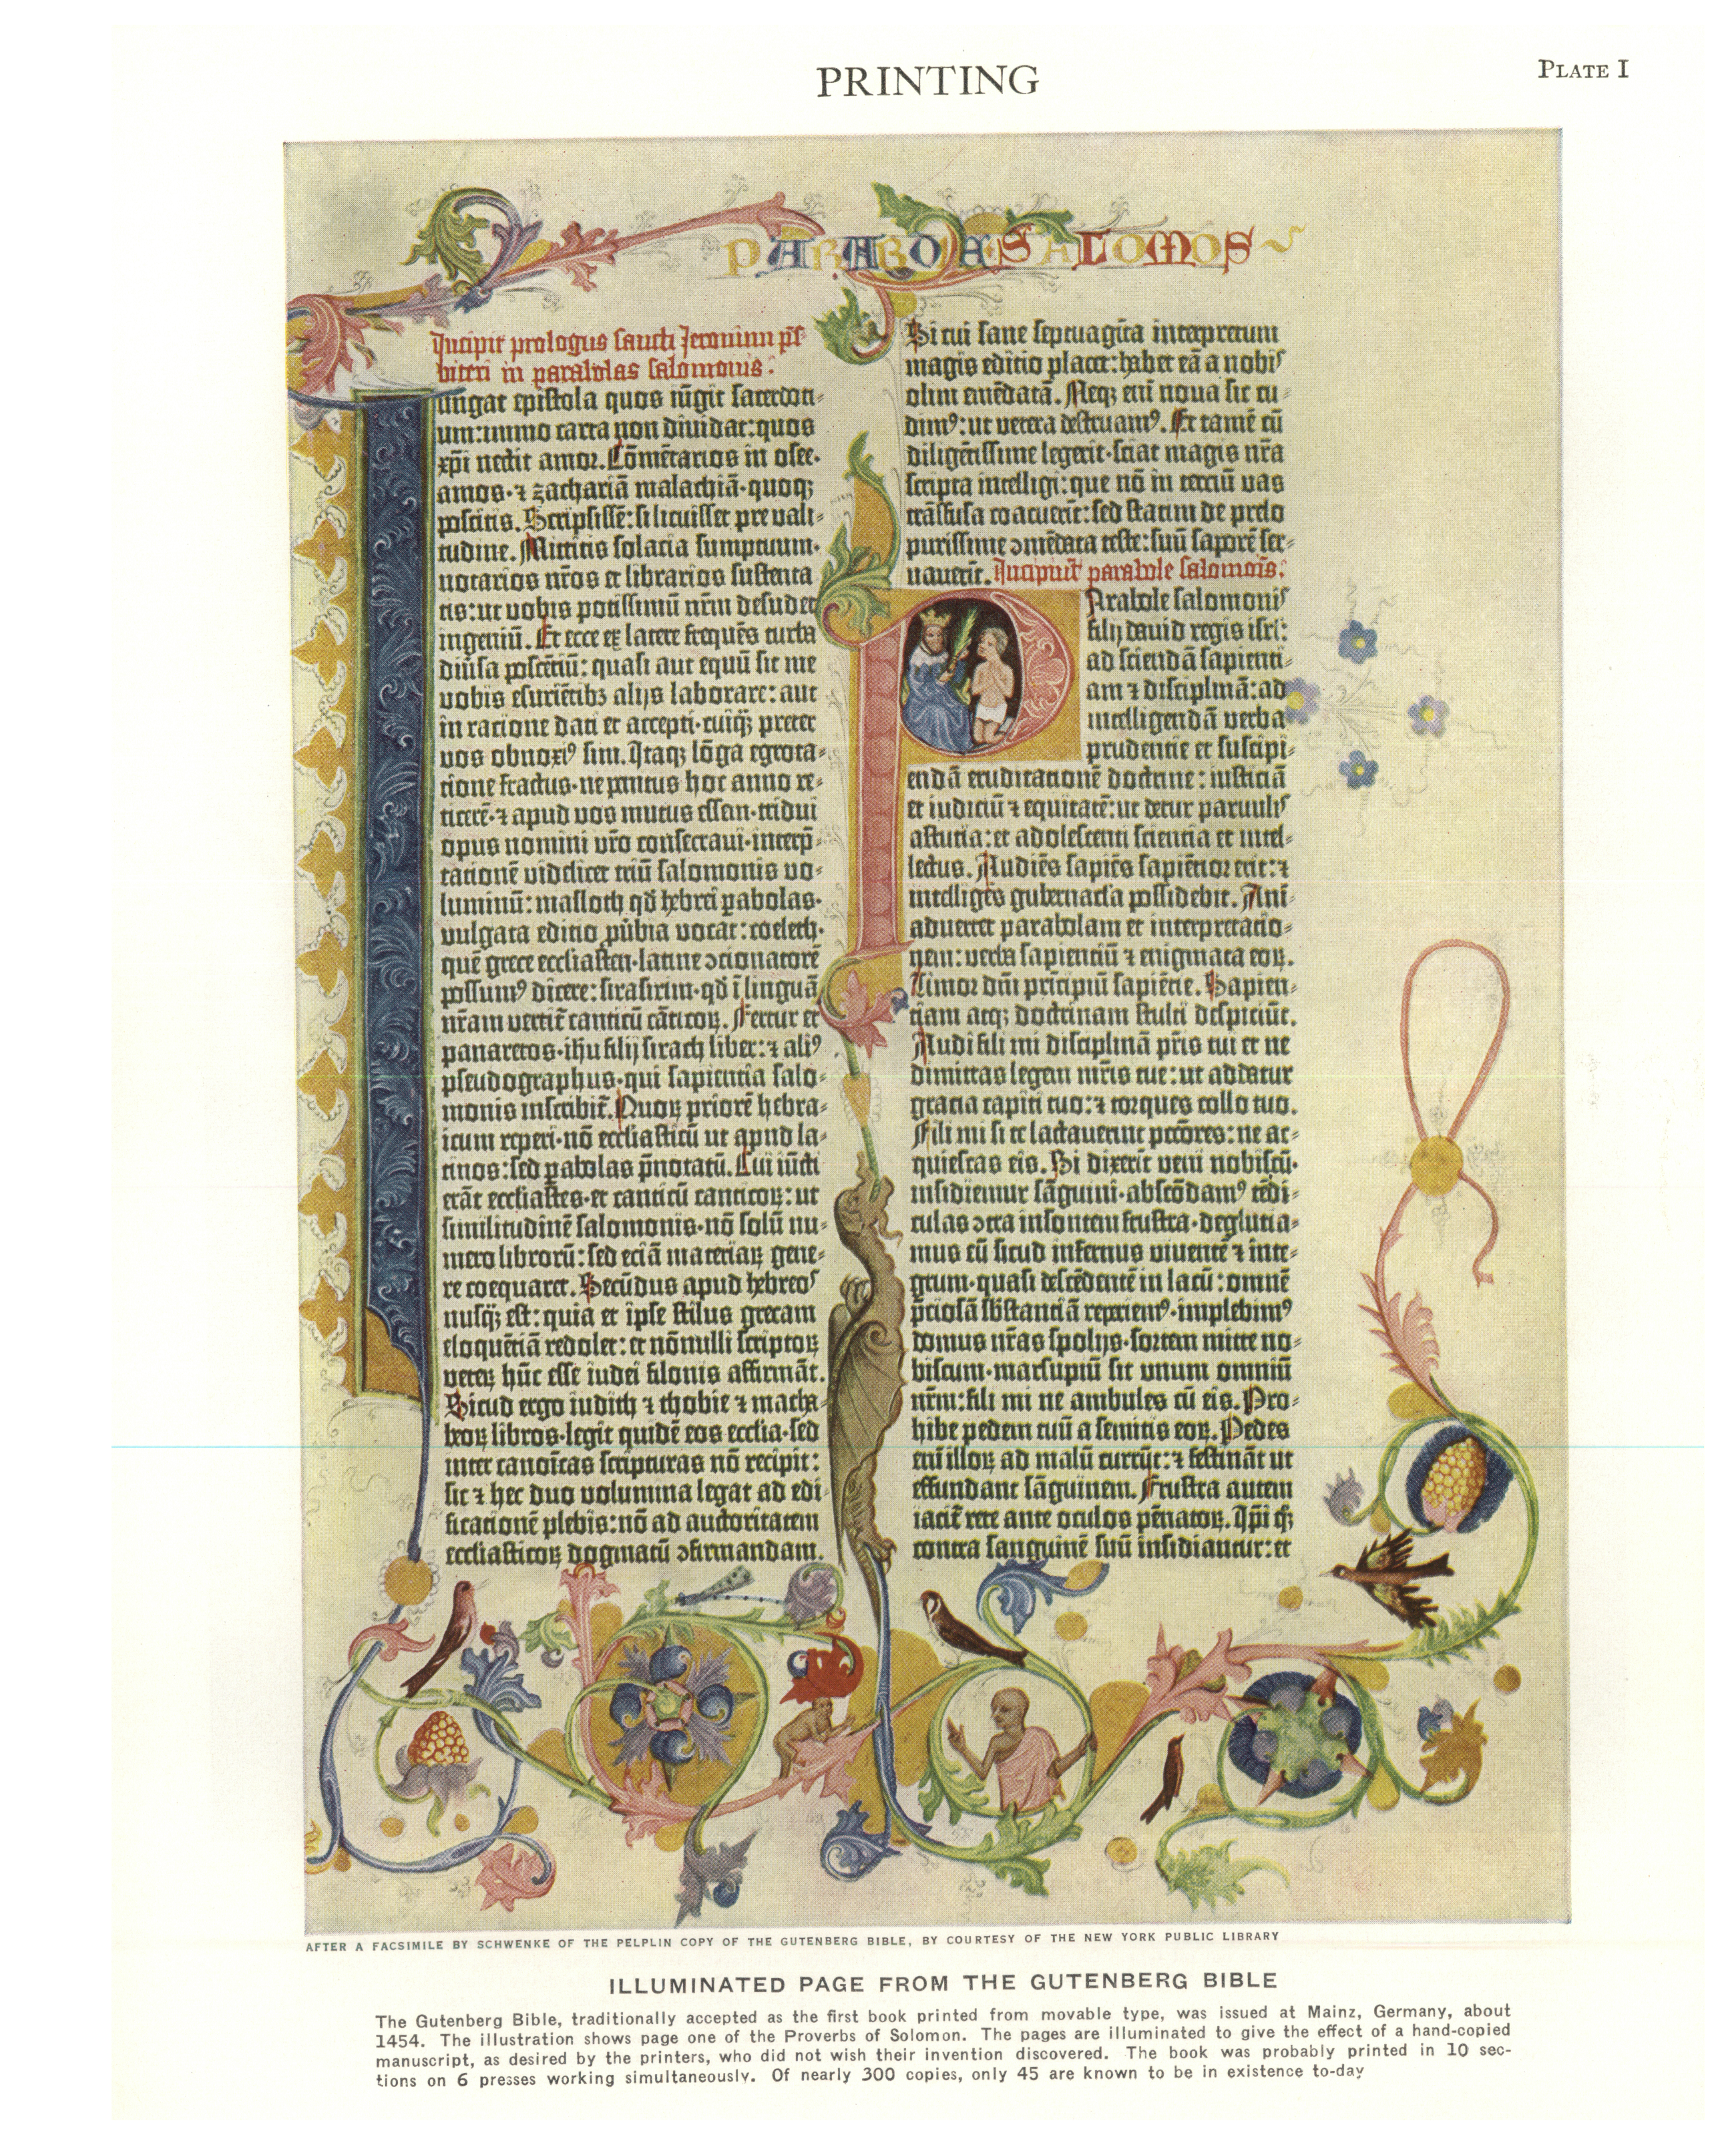 PRINTING
PLATE I
PARABOLAE SALOMOS
Incipit prologus sancti Jeronimi p̄s-
biteri in parabolas salomonis.
Iungat epistola quos iūgit sacerdoti-
um: immo carta non diuidat: quos
xp̄i nectit amor. Cōmētarios in osee.
amos. ⁊ zachariā malachiā. quoq;
poscitis. Scripsissē: si licuisset pre vali-
tudine. Mittitis solacia sumptuum.
notarios nr̄os et librarios sustenta-
tis: ut vobis potissimū nr̄m desudet
ingeniū. Et ecce ex latere frequēs turba
diūsa poscētiū: quasi aut equū sit me
vobis esuriētibꝫ alijs laborare: aut
in ratione dati et accepti. cuiq̄; preter
vos obnoxiꝰ sim. Itaq; lōga egrota-
tione fractus. ne penitus hoc anno re-
ticerē. ⁊ apud vos mutus essem. tridui
opus nomini vr̄o consecraui. interp̄-
tationē videlicet triū salomonis vo-
luminū: masloth qd̄ hebrei ꝑabolas.
vulgata editio ꝓūbia vocat: coeleth.
quē grece ecclesiasten. latine ɔcionatorē
possumꝰ dicere: sirasirim. qd̄ ī linguā
nr̄am vertit̄ canticū cāticoꝝ. Fertur et
panaretos. ihu filij sirach liber: ⁊ aliꝰ
pseudographus. qui sapientia salo-
monis inscribit̄. Quoꝝ priorē hebra-
icum reperi. nō ecclesiasticū ut apud la-
tinos: sed ꝑabolas p̄notatū. Cui iūcti
erāt ecclesiastes. et canticū canticoꝝ: ut
similitudinē salomonis. nō solū nu-
mero librorū: sed eciā materiaꝝ gene-
re coequaret. Secūdus apud hebreos
nusq̄; est: quia et ipse stilus grecam
eloquētiā redolet: et nōnulli scriptoꝝ
veteꝝ hūc esse iudei filonis affirmāt.
Sicud ergo iudith ⁊ thobie ⁊ macha-
beoꝝ libros. legit quidē eos ecclesia. sed
inter canoīcas scripturas nō recipit:
sic ⁊ hec duo volumina legat ad edi-
ficationē plebis: nō ad auctoritatem
ecclesiasticoꝝ dogmatū ɔfirmandam.
Si cui sane septuagīta interpretum
magis editio placet: habet eā a nobis
olim emēdatā. Neq; eni noua sic cu-
dimꝰ: ut vetera destruamꝰ. Et tamē cū
diligētissime legerit. sciat magis nr̄a
scripta intelligi: que nō in terciū vas
trāsfusa coacuerīt: sed statim de prelo
purissime ɔmēdata teste: suū saporē ser-
uauerīt. Incipiūt parabole salomōis.
Parabole salomonis
filij dauid regis isrl̄:
ad sciendā sapienti-
am ⁊ disciplinā: ad
intelligendā verba
prudentie et suscipi-
endā eruditationē doctrine: iusticiā
et iudiciū ⁊ equitatē: ut detur paruulis
astutia: et adolescenti scientia et intel-
lectus. Audiēs sapiēs sapiētior erit: ⁊
intelligēs gubernacla possidebit. Ani-
aduertet parabolam et interpretatio-
nem: verba sapientiū ⁊ enigmata eoꝝ.
Timor dn̄i prīcipiū sapiētie. Sapien-
tiam atq; doctrinam stulti despiciūt.
Audi fili mi disciplinā pr̄is tui et ne
dimittas legem mr̄is tue: ut addatur
gracia capiti tuo: ⁊ torques collo tuo.
Fili mi si te lactauerint pccōres: ne ac-
quiescas eis. Si dixerīt veni nobiscū.
insidiemur sāguini. abscōdamꝰ tēdi-
culas ɔtra insontem frustra. degluti a-
mus eū sicud infernus viuentē ⁊ inte-
grum. quasi descēdentē in lacū: omnē
p̄ciosā sb̄stantiā reperiemꝰ. implebimꝰ
domus nr̄as spolijs. sortem mitte no-
biscum. marsupiū sit unum omniū
nr̄m: fili mi ne ambules cū eis. Pro-
hibe pedem tuū a semitis eoꝝ. Pedes
eni illoꝝ ad malū currūt: ⁊ festināt ut
effundant sāguinem. Frustra autem
iacit̄ rete ante oculos pēnatoꝝ. Ip̄i q̄;
contra sanguinē suū insidiantur: et
AFTER A FACSIMILE BY SCHWENKE OF THE PELPLIN COPY OF THE GUTENBERG BIBLE, BY COURTESY OF THE NEW YORK PUBLIC LIBRARY
ILLUMINATED PAGE FROM THE GUTENBERG BIBLE
The Gutenberg Bible, traditionally accepted as the first book printed from movable type, was issued at Mainz, Germany, about
1454. The illustration shows page one of the Proverbs of Solomon. The pages are illuminated to give the effect of a hand-copied
manuscript, as desired by the printers, who did not wish their invention discovered. The book was probably printed in 10 sec-
tions on 6 presses working simultaneously. Of nearly 300 copies, only 45 are known to be in existence to-day